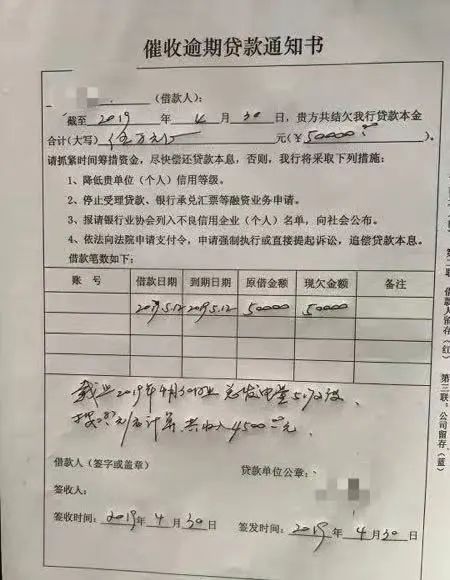 催收逾期贷款通知书
（借款人）：
截至 2019 年 4 月 30 日，贵方共结欠我行贷款本金
合计(大写) 伍万元 元(￥ 50000.00 )。
请抓紧时间筹措资金，尽快偿还贷款本息，否则，我行将采取下列措施：
1、降低贵单位（个人）信用等级。
2、停止受理贷款、银行承兑汇票等融资业务申请。
3、报请银行业协会列入不良信用企业（个人）名单，向社会公布。
4、依法向法院申请支付令，申请强制执行或直接提起诉讼，追偿贷款本息。
借款笔数如下：
账 号 借款日期 到期日期 原借金额 现欠金额 备注
2019.5.12 50000 50000
截止2019年4月30日 总发电量
计算 共收入4500元.
借款人（签字或盖章） 贷款单位公章：
签收人：
签收时间：2019年 4 月 30 日 签发时间：2019年 4 月 30 日
借款人留存（红） 第三联：公司留存（蓝）